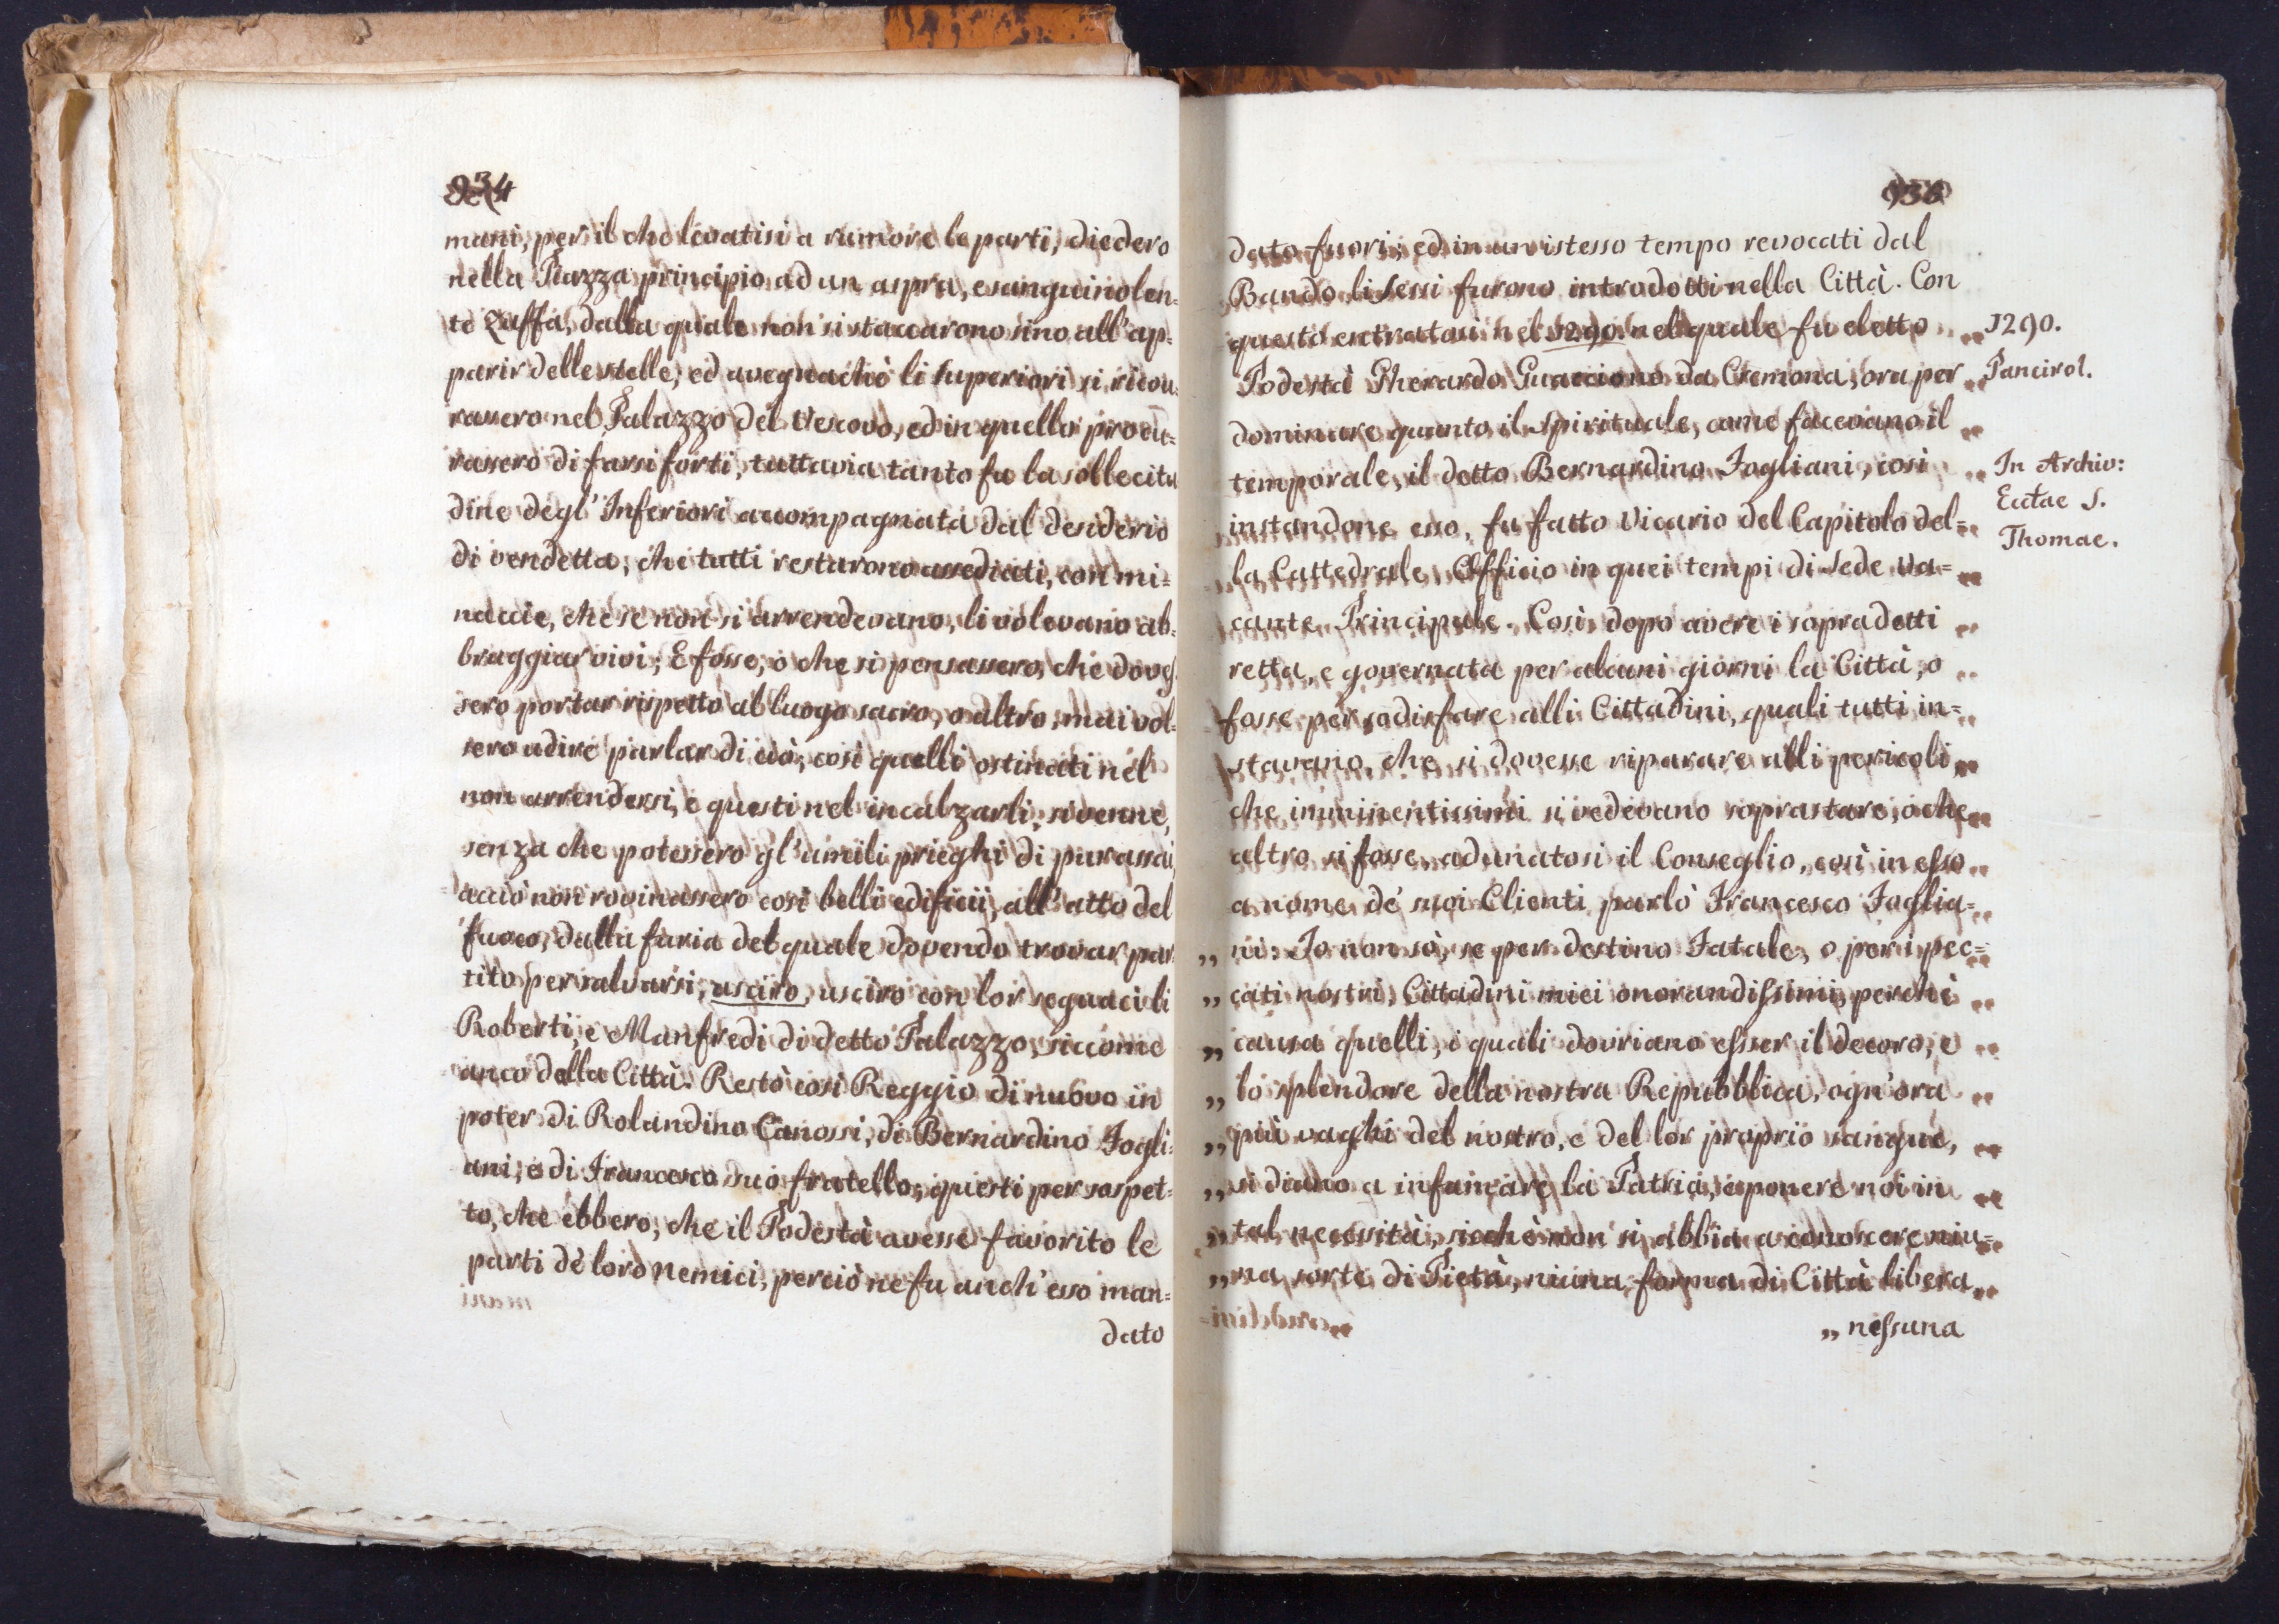 934
mani, per il che levatisi a rumore le parti, diedero
nella Piazza principio ad un aspra, e sanguinolen=
te Zuffa, dalla quale non si staccarono sino all'ap=
parir delle stelle; ed avegnachè li Superiori si ricou=
rassero nel Palazzo del Vescovo, ed in quello procu=
rassero di farsi forti, tuttavia tanto fu la sollecitu
dine degl'Inferiori accompagnata dal desiderio
di vendetta, che tutti restarono assediati, con mi=
naccie, che se non si arrendevano, li volevano ab=
braggiar vivi; E fosse, o che si pensassero, che doves
sero portar rispetto al luogo sacro, o altro, mai vol=
sero udire parlar di ciò, così quelli ostinati nel
non arrendersi, e questi nel incalzarli, si venne,
senza che potessero gl'umili prieghi di parassai,
acciò non rovinassero così belli edificii, all'atto del
fuoco, dalla furia del quale dovendo trovar par
tito per salvarsi, usciro, usciro con lor seguaci li
Roberti, e Manfredi di detto Palazzo, siccome
anco della Città. Restò così Reggio di nuovo in
poter di Rolandino Canossi, di Bernardino Fogli=
ani, e di Francesco suo fratello; questi per sospet=
to, che ebbero, che il Podestà avesse favorito le
parti dè loro nemici, perciò ne fu anch'esso man=
dato
935
dato fuori; ed in un istesso tempo revocati dal
Bando li Sessi furono introdotti nella Città. Con
questo entratosi nel 1290. nel quale fu eletto
Podestà Gherardo Guaccione da Cremona, ora per
dominare quanto il Spirituale, come facevano il
temporale, il detto Bernardino Fogliani, così
instandone esso, fu fatto Vicario del Capitolo del=
la Cattedrale, Officio in quei tempi di Sede Va=
cante Principale. Così dopo avere i sopradetti
retta, e governata per alcuni giorni la Città, o
fosse per sodisfare alli Cittadini, quali tutti in=
stavano, che si dovesse riparare alli pericoli,
che imminentissimi si vedevano soprastare, o che
altro si fosse, adunatosi il Conseglio, così in esso
a nome dè suoi Clienti parlò Francesco Foglia=
„ ni: Io non sò, se per destino Fatale, o per i pec=
„ cati nostri, Cittadini miei onorandissimi, perchè
„ causa quelli, i quali dovriano esser il decoro, e
„ lo splendore della nostra Repubblica, ogn'ora
„ più vaghi del nostro, e del lor proprio sangue,
„ si diano a infamare la Patria, a ponere noi in
„ tal necessità, sicchè non si abbia a conoscere niu=
„ na sorte di Pietà, niuna forma di Città libera,
„ nessuna
1290.
Pancirol.
In Archiv:
Ecclae S.
Thomae.